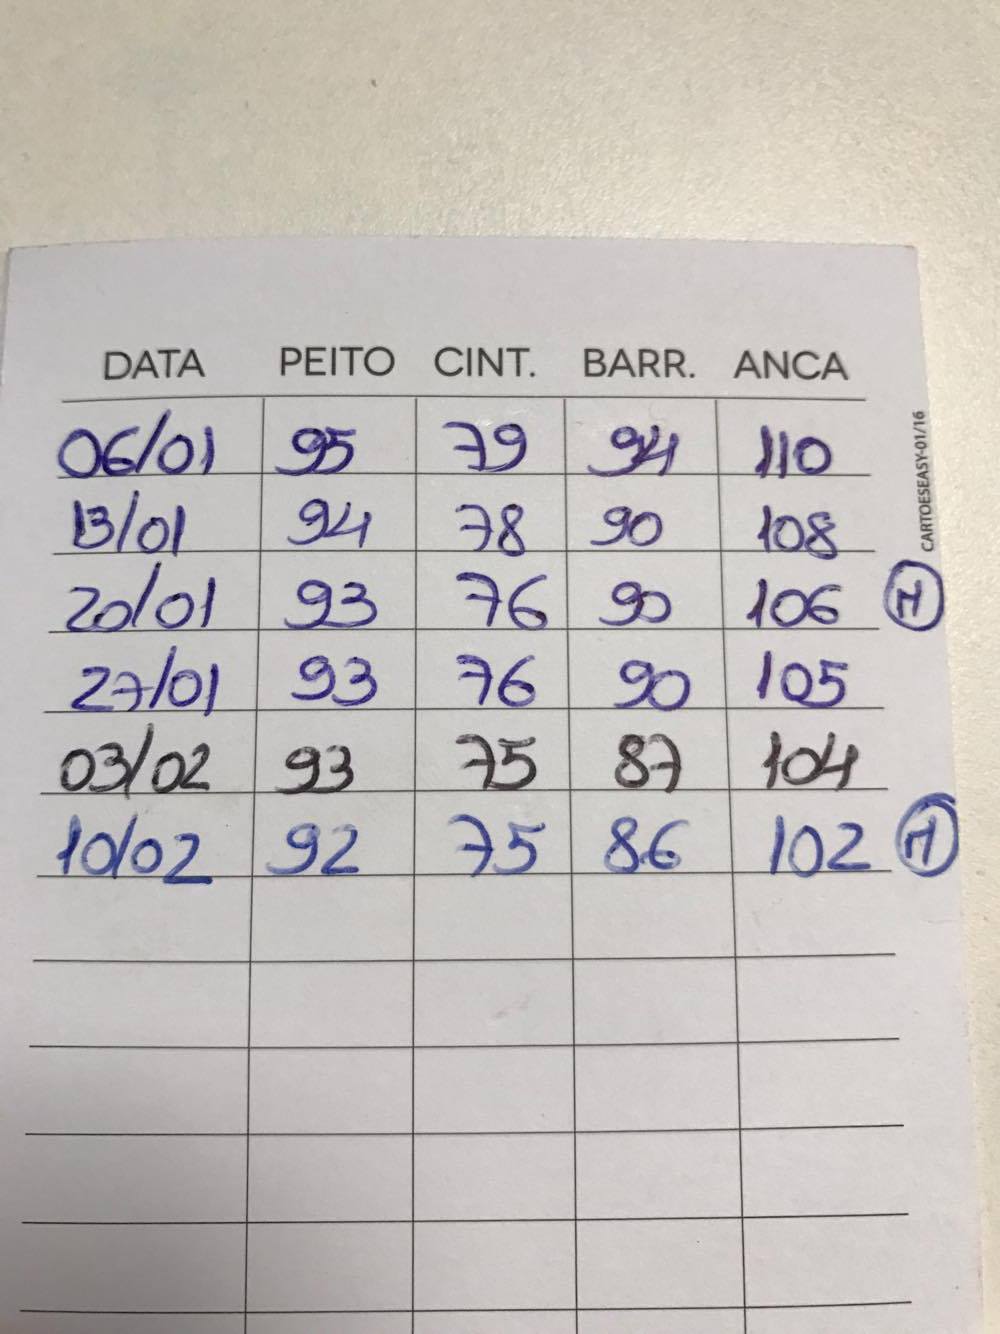 DATA PEITO CINT. BARR. ANCA
06/01 95 79 94 110
13/01 94 78 90 108
20/01 93 76 90 106 H
27/01 93 76 90 105
03/02 93 75 87 104
10/02 92 75 86 102 H
CARTOESEASY-01/16